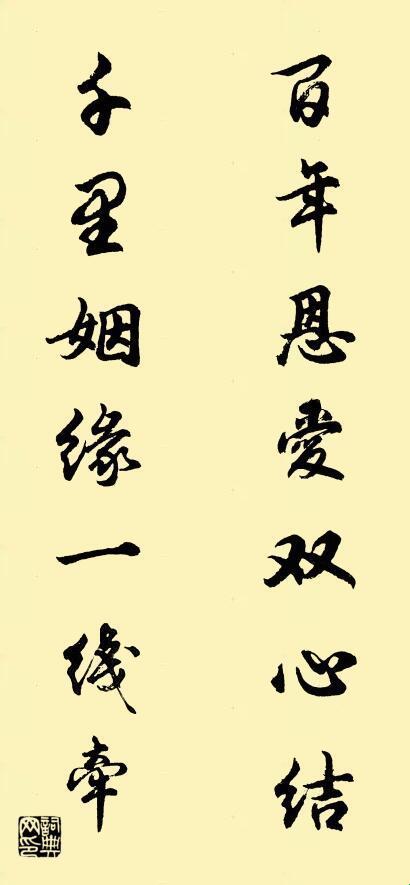 百年恩愛双心结
千里姻缘一线牵
詞典
网印